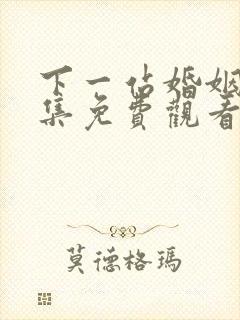 下一站婚姻
集免費觀看
莫德格瑪